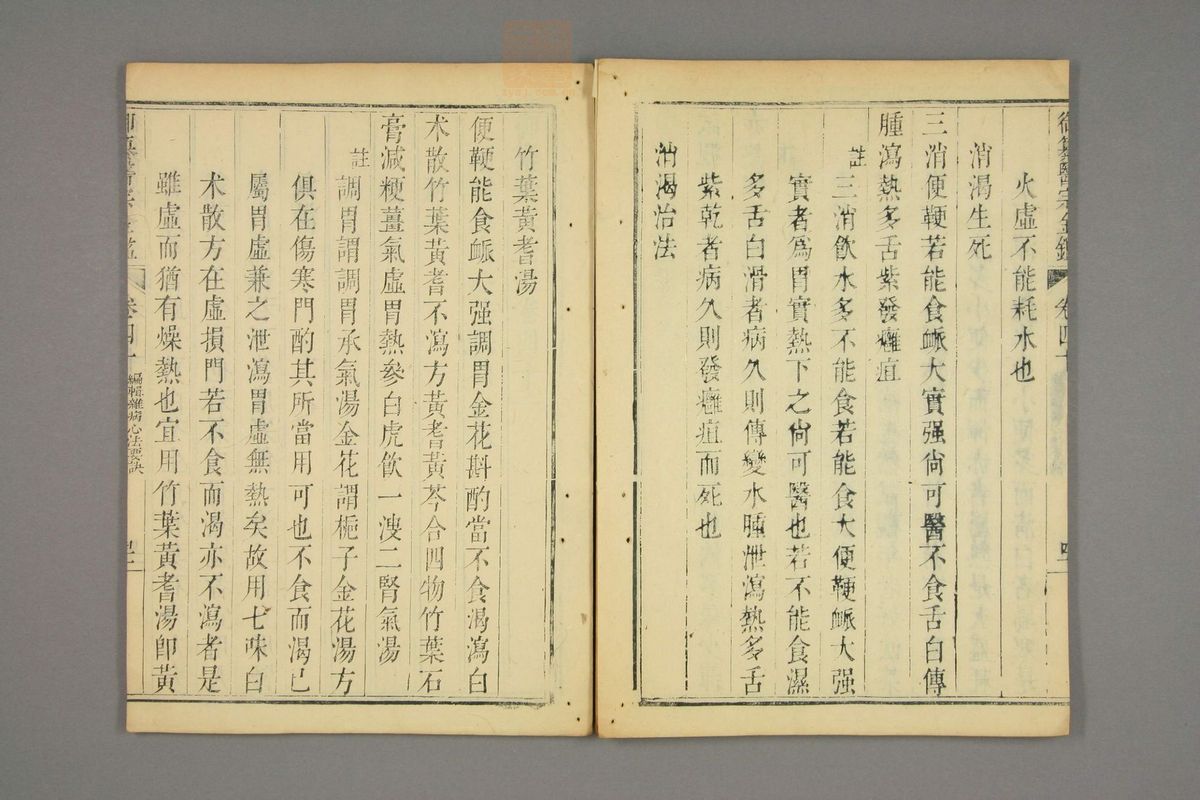 御纂醫宗金鑑 卷四十
火虛不能耗水也
消渴生死
三消便鞕若能食脈大實强尚可醫不食舌白傳
腫瀉熱多舌紫發癰疽
註三消飲水多不能食若能食大便鞕脈大强
實者爲胃實熱下之尚可醫也若不能食濕
多舌白滑者病久則傳變水腫泄瀉熱多舌
紫乾者病久則發癰疽而死也
消渴治法
竹葉黃耆湯
便鞕能食脈大强調胃金花斟酌當不食渴瀉白
朮散竹葉黃耆不瀉方黃耆黃芩合四物竹葉石
膏減粳薑氣虛胃熱參白虎飲一溲二腎氣湯
註調胃謂調胃承氣湯金花謂梔子金花湯方
俱在傷寒門酌其所當用可也不食而渴已
屬胃虛兼之泄瀉胃虛無熱矣故用七味白
朮散方在虛損門若不食而渴亦不瀉者是
雖虛而猶有燥熱也宜用竹葉黃耆湯卽黃
編輯雜病心法要訣